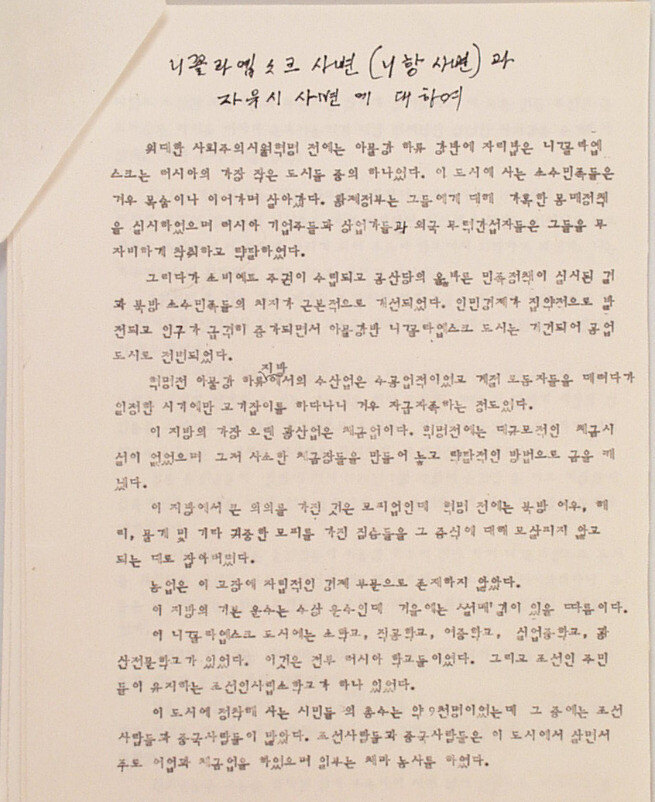 니꼴라옙스크 사변 (니항 사변) 과
자유시 사변 에 대하여
위대한 사회주의시월혁명 전에는 아물강 하류 강반에 자리잡은 니꼴라옙
스크는 러시아의 가장 작은 도시들 중의 하나였다. 이 도시에 사는 소수민족들은
겨우 목숨이나 이어가며 살아갔다. 황제정부는 그들에게 대해 가혹한 몽매정책
을 실시하였으며 러시아 기업주들과 상업가들과 외국 무력간섭자들은 그들을 무
자비하게 착취하고 략탈하였다.
그러다가 소비에트 주권이 수립되고 공산당의 올바른 민족정책이 실시된 결
과 북방 소수민족들의 처지가 근본적으로 개선되였다. 인민경제가 집약적으로 발
전되고 인구가 급격히 증가되면서 아물강반 니꼴라옙스크 도시는 개건되여 공업
도시로 전변되였다.
혁명전 아물강 하류 지방에서의 수산업은 수공업적이였고 계절 로동자들을 데려다가
일정한 시기에만 고기잡이를 하다나니 겨우 자급자족하는 정도였다.
이 지방의 가장 오랜 광산업은 채금업이다. 혁명전에는 대규모적인 채금시
설이 없었으며 그저 사소한 채금장들을 만들어 놓고 략탈적인 방법으로 금을 캐
냈다.
이 지방에서 큰 의의를 가진 것은 모피업인데 혁명 전에는 북방 여우, 해
리, 물개 및 기타 귀중한 모피를 가진 짐승들을 그 증식에 대해 보살피지 않고
되는 대로 잡아버렸다.
농업은 이 고장에 자립적인 경제 부문으로 존재하지 않았다.
이 지방의 기본 운수는 수상 운수인데 겨울에는 썰매길이 있을 따름이다.
이 니꼴라옙스크 도시에는 소학교, 직공학교, 여중학교, 실업중학교, 광
산전문학교가 있었다. 이것은 전부 러시아 학교들이였다. 그리고 조선인 주민
들이 유지하는 조선인사립소학교가 하나 있었다.
이 도시에 정착해 사는 시민들 의 총수는 약 9천명이였는데 그 중에는 조선
사람들과 중국사람들이 많았다. 조선사람들과 중국사람들은 이 도시에서 살면서
주로 어업과 채금업을 하였으며 일부는 채마 농사를 하였다.